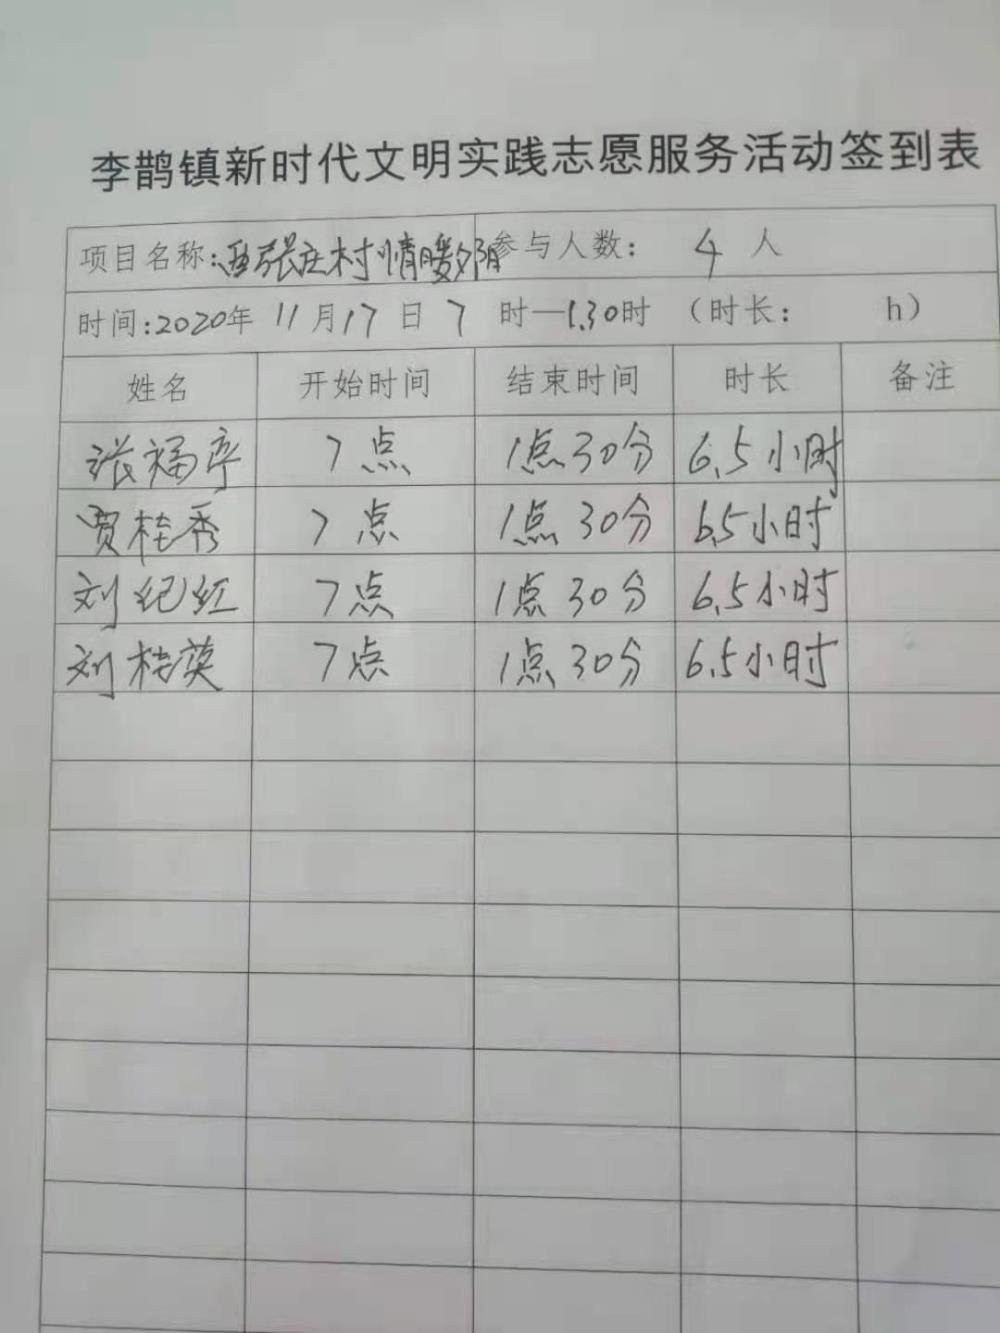 李鹊镇新时代文明实践志愿服务活动签到表
项目名称:西张庄村情暖夕阳 参与人数: 4 人
时间:2020年 11月17日 7 时—1.30时 (时长: h)
姓名 开始时间 结束时间 时长 备注
张福亭 7点 1点30分 6.5小时
贾桂秀 7点 1点30分 6.5小时
刘纪红 7点 1点30分 6.5小时
刘桂英 7点 1点30分 6.5小时